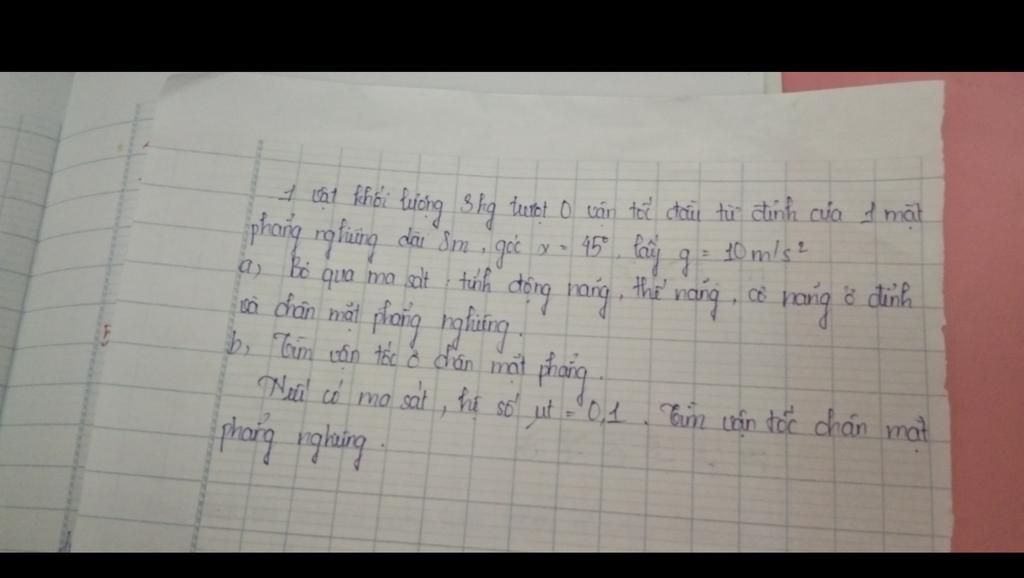 1 vật khối lượng 3kg trượt 0 vận tốc đầu từ đỉnh của 1 mặt
phẳng nghiêng dài 8m, góc α = 45°, lấy g = 10 m/s²
a, Bỏ qua ma sát, tính động năng, thế năng, cơ năng ở đỉnh
và chân mặt phẳng nghiêng.
b, Tìm vận tốc ở chân mặt phẳng.
Nếu có ma sát, hệ số μt = 0,1. Tìm vận tốc chân mặt
phẳng nghiêng.